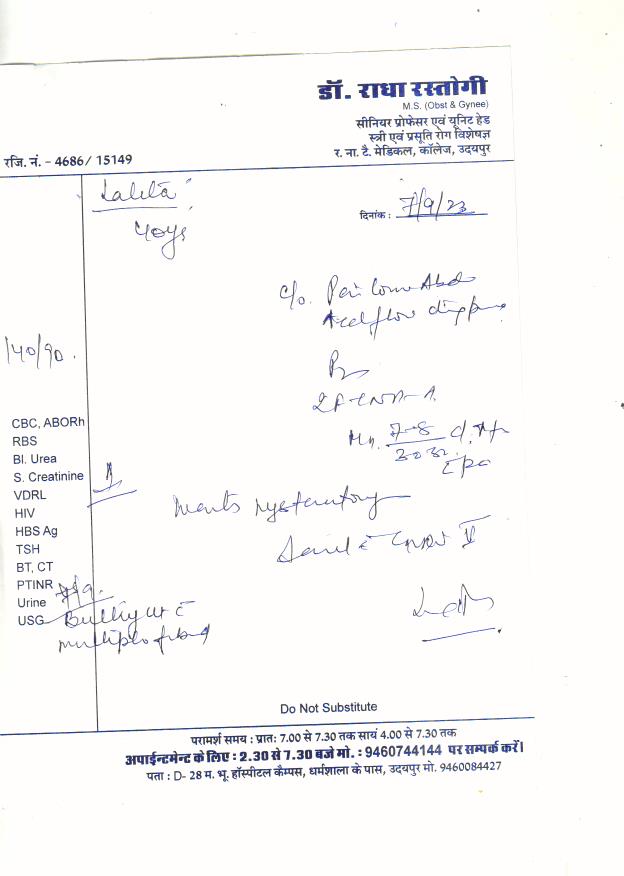 डॉ. राधा रस्तोगी
M.S. (Obst & Gynee)
सीनियर प्रोफेसर एवं यूनिट हेड
स्त्री एवं प्रसूति रोग विशेषज्ञ
र. ना. टै. मेडिकल, कॉलेज, उदयपुर
रजि. नं. - 4686/ 15149
Lalita
दिनांक : 7/9/23
40ys
c/o. Pain lower Abd
140/90.
CBC, ABORh
RBS
Bl. Urea
S. Creatinine
VDRL
HIV
HBS Ag
TSH
BT, CT
PTINR
Urine
USG
7/9.
Wants hysterectomy
Bulky ut c
multiple fibroid
Do Not Substitute
परामर्श समय : प्रातः 7.00 से 7.30 तक सायं 4.00 से 7.30 तक
अपाईन्टमेन्ट के लिए : 2.30 से 7.30 बजे मो. : 9460744144 पर सम्पर्क करें।
पता : D- 28 म. भू. हॉस्पीटल कैम्पस, धर्मशाला के पास, उदयपुर मो. 9460084427